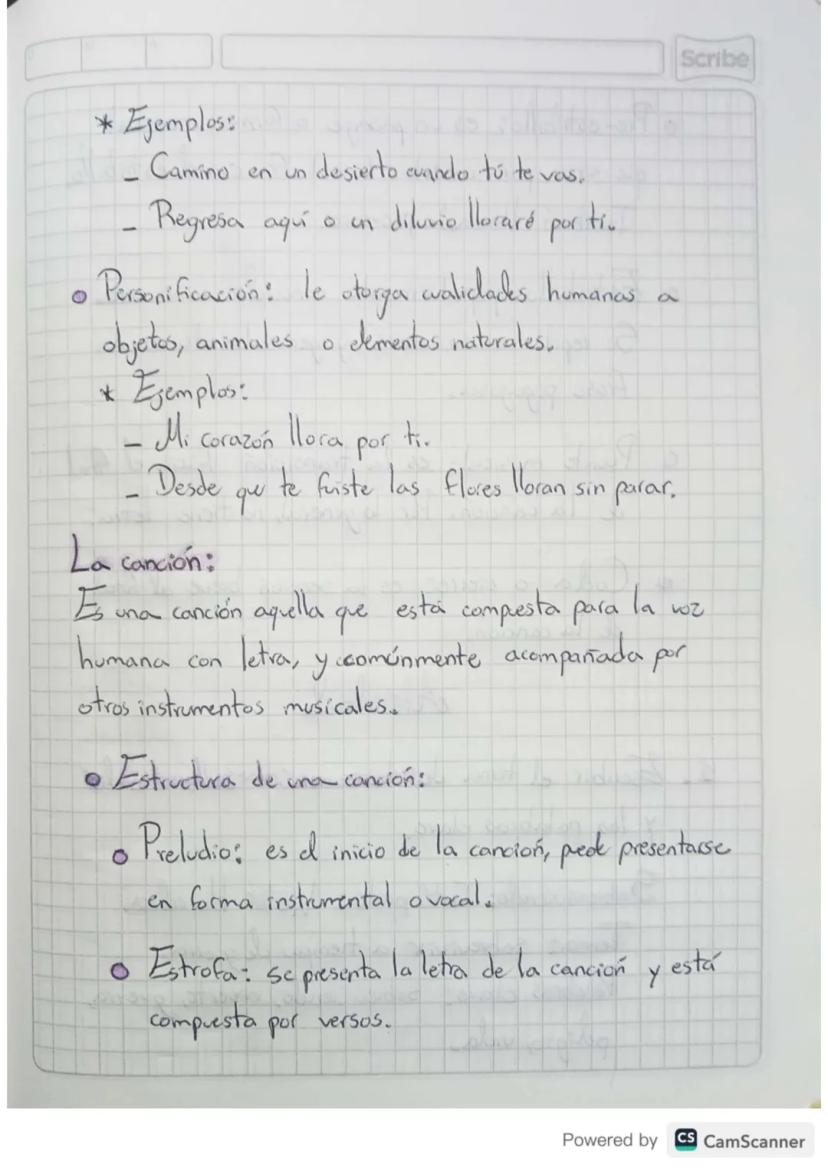 Scribe
* Ejemplos:
– Camino en un desierto cuando tú te vas.
– Regresa aquí o un diluvio lloraré por ti.
• Personificación: le otorga cualidades humanas a
objetos, animales o elementos naturales.
* Ejemplos:
– Mi corazón llora por ti.
– Desde que te fuiste las flores lloran sin parar.
La canción:
Es una canción aquella que está compuesta para la voz
humana con letra, y comúnmente acompañada por
otros instrumentos musicales.
• Estructura de una canción:
• Preludio: es el inicio de la canción, puede presentarse
en forma instrumental o vocal.
• Estrofa: se presenta la letra de la canción y está
compuesta por versos.
Powered by CS CamScanner